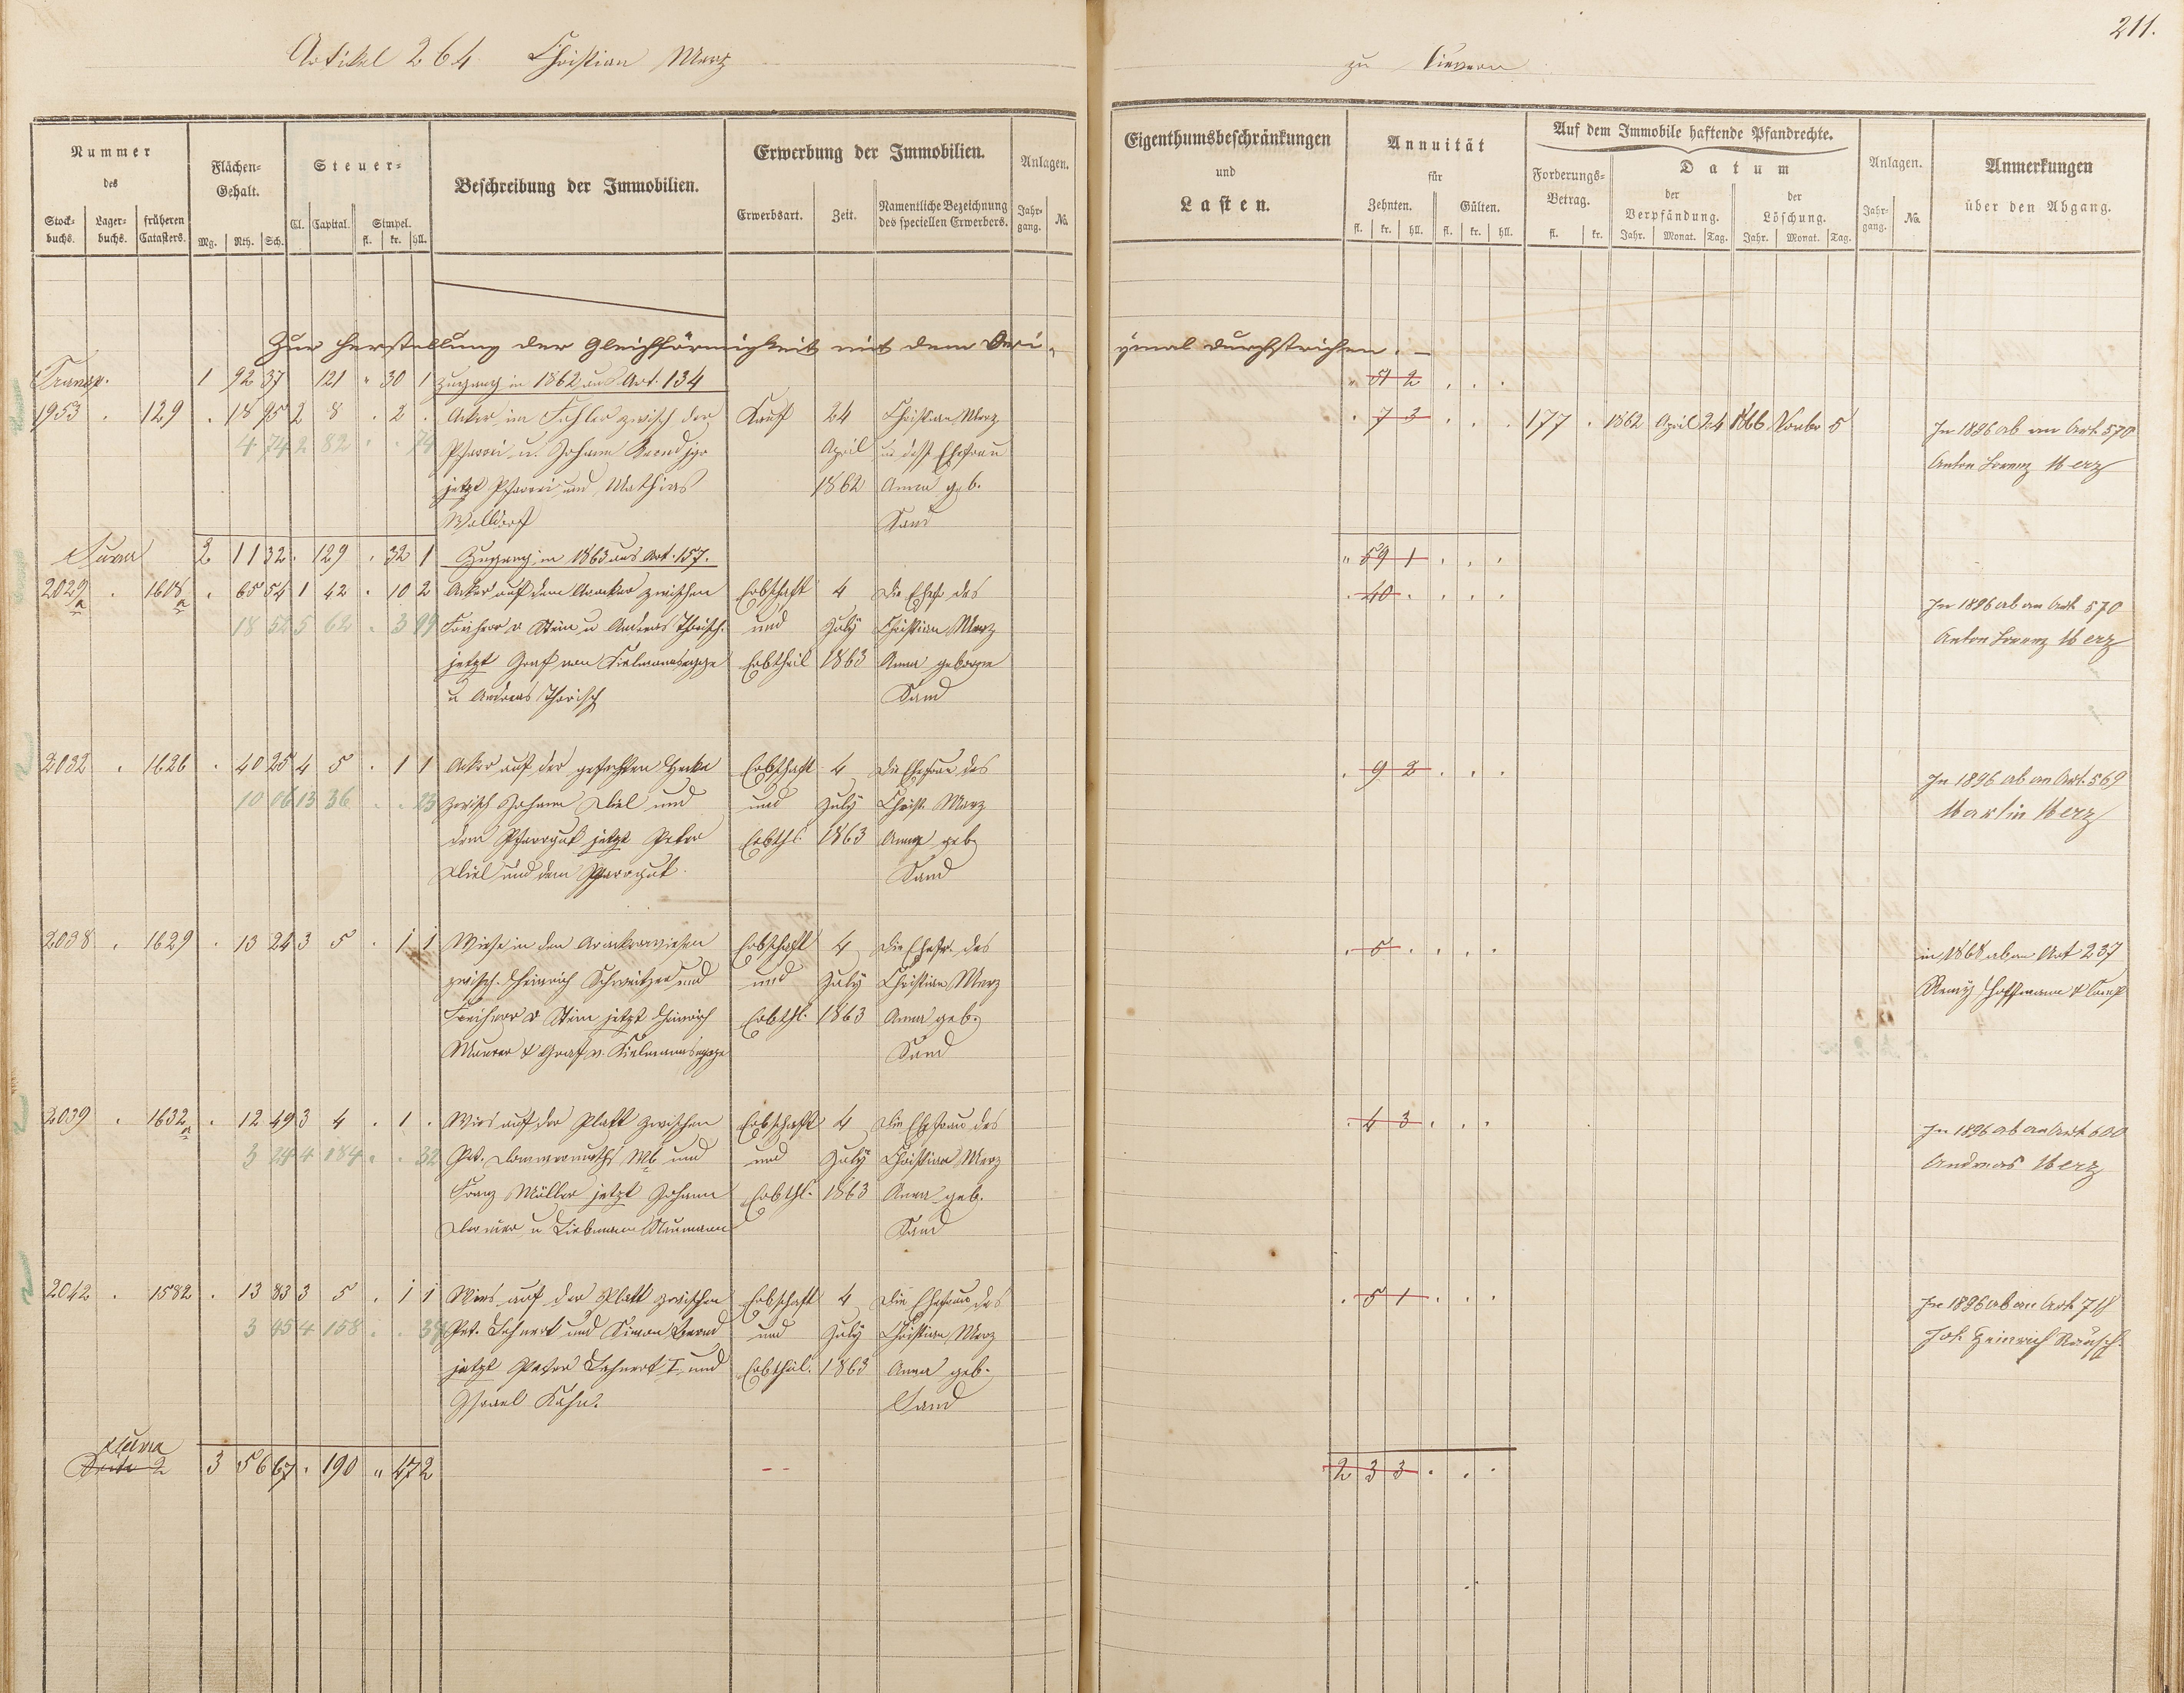 211.
Artikel 264 Christian Merz zu Sievern
Nummer des
Stock-buchs. Lager-buchs. früheren Catasters.
Flächen-Gehalt.
Mg. Rth. Sch.
Steuer-
Cl. Capital. Simpel.
fl. kr. hll.
Beschreibung der Immobilien.
Erwerbung der Immobilien.
Erwerbsart. Zeit. Namentliche Bezeichnung des speciellen Erwerbers.
Anlagen.
Jahr-gang. No.
Eigenthumsbeschränkungen und Lasten.
Annuität für
Zehnten. Gülten.
fl. kr. hll. fl. kr. hll.
Auf dem Immobile haftende Pfandrechte.
Forderungs-Betrag.
fl. kr.
Datum
der Verpfändung. der Löschung.
Jahr. Monat. Tag. Jahr. Monat. Tag.
Anlagen.
Jahr-gang. No.
Anmerkungen über den Abgang.
Zur Herstellung der Gleichförmigkeit mit dem Ori-ginal durchstrichen. –
Transp. 1 92 37 121 " 30 1 Zugang in 1862 aus Art. 134 " 51 2 . . .
1953 . 129 . 18 95 2 8 . 2 . Acker im zwisch der Kauf 24 Christian Merz . 7 3 . . . 177 . 1862 April 24 1866 Novbr 5 In 1896 ab an Art. 570
4 74 2 82 . . 74 Pfarrei u. Johann April u. dess Ehefrau Anton Lorenz Merz
jetzt Pfarrei und Mathias 1862 Anna geb.
Walldorf Sand
Summa 2 11 32 . 129 . 32 1 Zugang in 1863 aus Art. 157. " 59 1 . . .
2029a . 1608a . 65 54 1 42 . 10 2 Acker auf dem zwischen Erbschaft 4 Die Ehefr des . 40 . . . . In 1896 ab an Art. 570
18 52 5 62 . 3 99 Freiherr v Stein u Andreas Theisch. und July Christian Merz Anton Lorenz Merz
jetzt Graf von Kielmannsegge Erbtheil 1863 Anna geborene
u Andreas Theisch Sand
2032 . 1626 . 40 25 4 5 . 1 1 Acker auf der Hecke Erbschaft 4 Die Ehefrau des . 9 2 . . . In 1896 ab an Art. 569
10 06 13 36 . . 23 zwisch Johann Diel und und July Christ. Merz Martin Merz
dem Pfarrgut jetzt Peter Erbthl. 1863 Anna geb
Diel und dem Pfarrgut. Sand
2038 . 1629 . 13 24 3 5 . 1 1 Wiese in den Erbschaft 4 Die Ehefr. des . 5 . . . . in 1868 ab an Art 237
zwisch. Heinrich Schweitzer und und July Christian Merz Remy Hoffmann & Comp
Freiherr v Stein jetzt Heinrich Erbthl. 1863 Anna geb.
Maurer & Graf v. Kielmannsegge Sand
2039 . 1632a . 12 49 3 4 . 1 . Wies auf der Platt zwischen Erbschaft 4 Die Ehefrau des . 4 3 . . . In 1896 ab an Art 600
3 24 4 184 . . 32 Pet. Wb und und July Christian Merz Andreas Merz
Franz Müller jetzt Johann Erbthl. 1863 Anna geb.
u Liebmann Naumann Sand
2042 . 1582 . 13 83 3 5 . 1 1 Wies auf der Platt zwischen Erbschaft 4 Die Ehefrau des . 5 1 . . . In 1896 ab an Art. 711
3 45 4 158 . . Pet. Lehnert und Simon und July Christian Merz Joh. Heinrich Rausch.
jetzt Peter Lehnert I und Erbtheil. 1863 Anna geb.
Israel Kahn. Sand
Summa
Seite 2 3 56 67 . 190 " 47 2 2 3 3 . . .